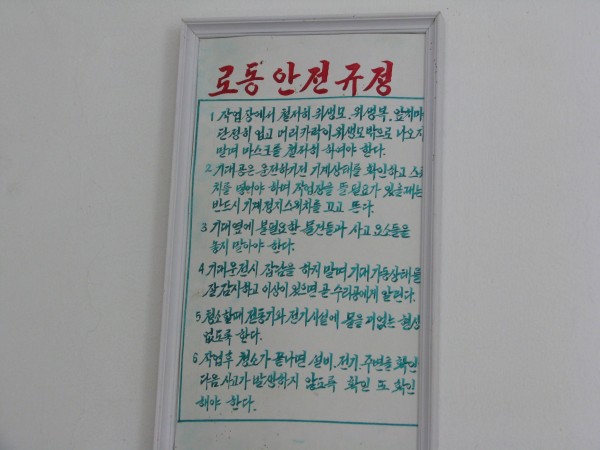 로동 안전 규정
1 작업장에서 철저히 위생모, 위생복, 앞치마
단정히 입고 머리카락이 위생모밖으로 나오지
말며 마스크를 철저히 하여야 한다.
2. 기대공은 운전하기전 기계상태를 확인하고
치를 하며 작업장을 뜰 필요가 있을때는
반드시 기계정지스위치를 끄고 뜬다.
3 기대옆에 불필요한 물건들과 사고 요소들을
놓지 말아야 한다.
4 기대운전시 잡담을 하지 말며 기대가동상태를
잘 감시하고 이상이 있으면 곧 수리공에게 알린다.
5 청소할때 전동기와 전기시설에 물을 없는
없도록 한다.
6 작업후 청소가 끝나면 설비, 전기, 주변을 확인
다음 사고가 발생하지 않도록 확인 또 확인
해야 한다.